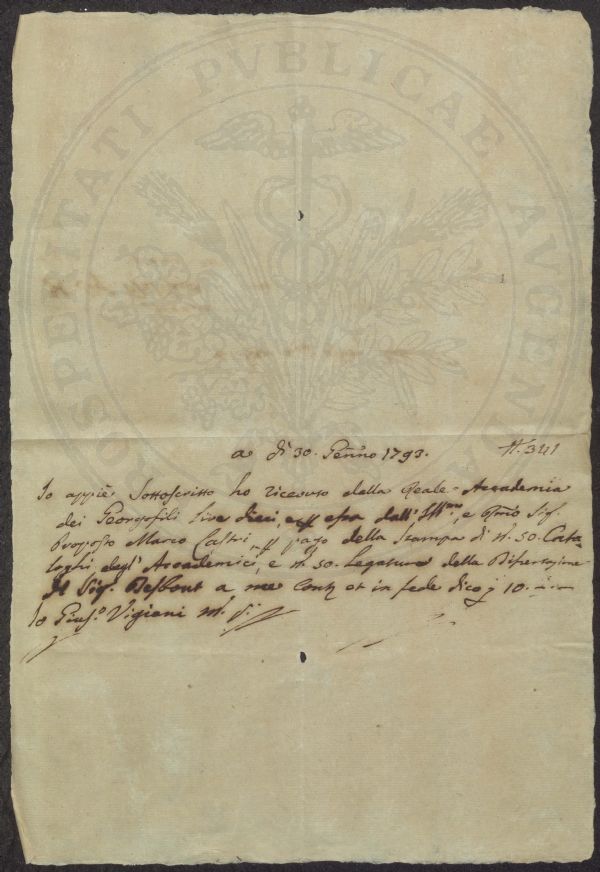 PROSPERITATI PVBLICAE AVGENDAE
a dì 30. Genn.o 1793. N. 341
Io appiè Sottoscritto ho ricevuto dalla Reale Accademia
dei Georgofili Lire dieci, e p essa dall' Ill.mo, e Rmo Sig.
Proposto Marco Lastri, p pago della Stampa di N. 50. Cata=
loghi degl' Accademici, e N. 50. Legature della Dissertazione
Sig. Desbout a me Conti et in fede dico 10. -. -
Io Gius.o Vigiani